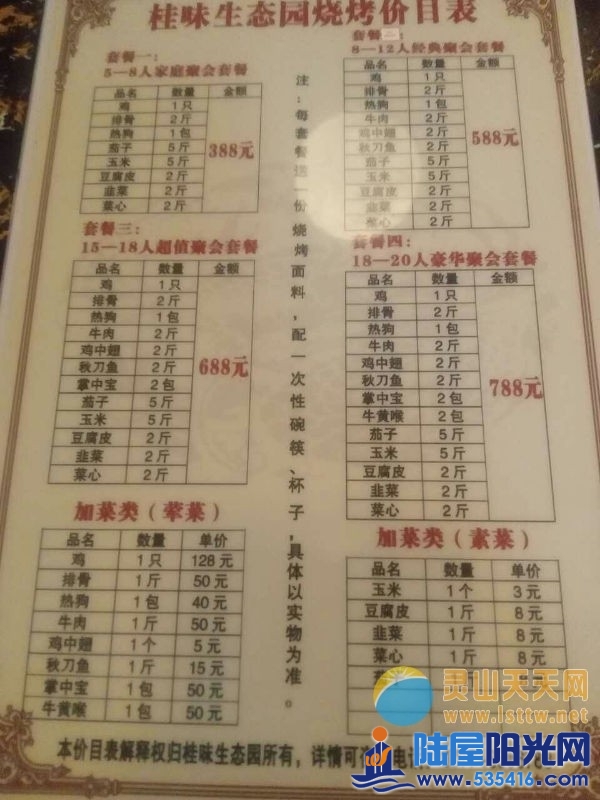 桂味生态园烧烤价目表
套餐一：
5—8人家庭聚会套餐
品名 数量 金额
鸡 1只
排骨 2斤
热狗 1包
茄子 5斤
玉米 5斤
豆腐皮 2斤
韭菜 2斤
菜心 2斤
388元
套餐
8—12人经典聚会套餐
品名 数量 金额
鸡 1只
排骨 2斤
热狗 1包
牛肉 2斤
鸡中翅 2斤
秋刀鱼 2斤
茄子 5斤
玉米 5斤
豆腐皮 2斤
韭菜 2斤
菜心 2斤
588元
套餐三：
15—18人超值聚会套餐
品名 数量 金额
鸡 1只
排骨 2斤
热狗 1包
牛肉 2斤
鸡中翅 2斤
秋刀鱼 2斤
掌中宝 2包
茄子 5斤
玉米 5斤
豆腐皮 2斤
韭菜 2斤
菜心 2斤
688元
套餐四：
18—20人豪华聚会套餐
品名 数量 金额
鸡 1只
排骨 2斤
热狗 1包
牛肉 2斤
鸡中翅 2斤
秋刀鱼 2斤
掌中宝 2包
牛黄喉 2包
茄子 5斤
玉米 5斤
豆腐皮 2斤
韭菜 2斤
菜心 2斤
788元
注：每套餐送一份烧烤面料，配一次性碗筷、杯子，具体以实物为准。
加菜类（荤菜）
品名 数量 单价
鸡 1只 128元
排骨 1斤 50元
热狗 1包 40元
牛肉 1斤 50元
鸡中翅 1个 5元
秋刀鱼 1斤 15元
掌中宝 1包 50元
牛黄喉 1包 50元
加菜类（素菜）
品名 数量 单价
玉米 1个 3元
豆腐皮 1斤 8元
韭菜 1斤 8元
菜心 1斤 8元
1斤
本价目表解释权归桂味生态园所有，详情可 电
灵山天天网
www.lsttw.net
陆屋阳光网
www.535416.com